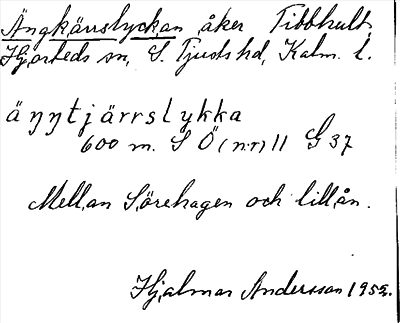 Ängkärrslyckan åker Tibbhult,
Hjorteds sn, S. Tjusts hd, Kalm. l.
äŋŋtjärrslykka
600 m. S Ö (n:r) 11 G 37
Mellan Sörehagen och lillån.
Hjalmar Andersson 1952.